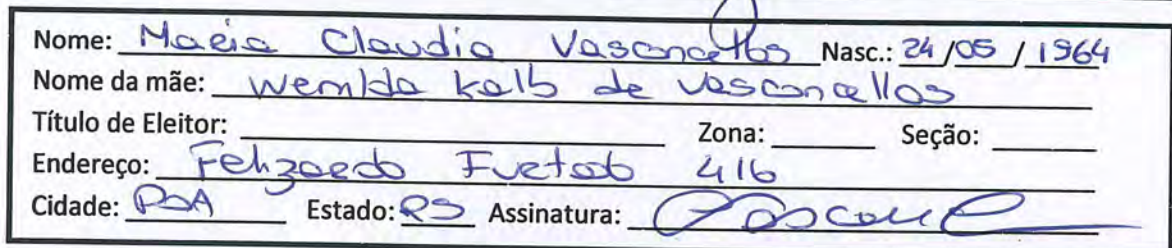 Nome: Maria Claudia Vasconcellos Nasc.: 24/05/1964
Nome da mãe: Wenilda Kalb de Vasconcellos
Título de Eleitor: Zona: Seção:
Endereço: Felizardo Furtado 416
Cidade: POA Estado: RS Assinatura: